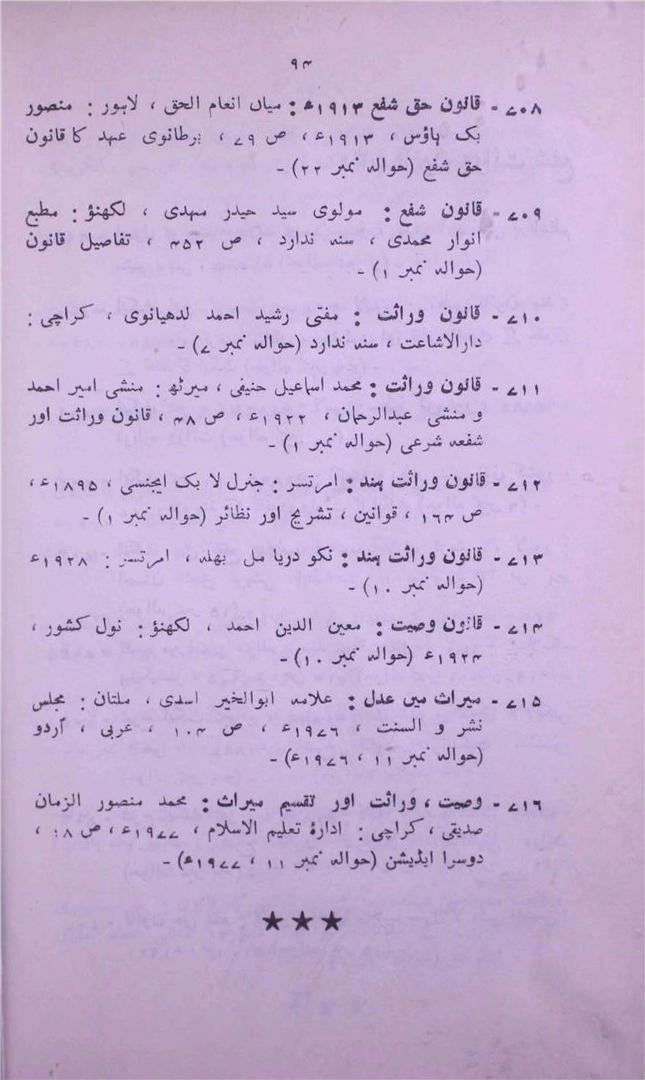 ۹۴
۷۰۸ - قانون حق شفع ۱۹۱۳ء : میاں انعام الحق ، لاہور : منصور
بک ہاؤس ، ۱۹۱۳ء ، ص ۷۹ ، برطانوی عہد کا قانون
حق شفع (حوالہ نمبر ۲۲) -
۷۰۹ - قانون شفع : مولوی سید حیدر مہدی ، لکھنؤ : مطبع
انوار محمدی ، سنہ ندارد ، ص ۴۵۲ ، تفاصیل قانون
(حوالہ نمبر ۱) -
۷۱۰ - قانون وراثت : مفتی رشید احمد لدھیانوی ، کراچی :
دارالاشاعت ، سنہ ندارد (حوالہ نمبر ۷) -
۷۱۱ - قانون وراثت : محمد اسماعیل حنیفی ، میرٹھ : منشی امیر احمد
و منشی عبدالرحمان ، ۱۹۲۲ء ، ص ۴۸ ، قانون وراثت اور
شفعہ شرعی (حوالہ نمبر ۱) -
۷۱۲ - قانون وراثت ہند : امرتسر : جنرل لا بک ایجنسی ، ۱۸۹۵ء ،
ص ۱۶۴ ، قوانین ، تشریح اور نظائر (حوالہ نمبر ۱) -
۷۱۳ - قانون وراثت ہند : نکو دریا مل بھلہ ، امرتسر : ۱۹۲۸ء
(حوالہ نمبر ۱۰) -
۷۱۴ - قانون وصیت : معین الدین احمد ، لکھنؤ : نول کشور ،
۱۹۲۴ء (حوالہ نمبر ۱۰) -
۷۱۵ - میراث میں عدل : علامہ ابوالخیر اسدی ، ملتان : مجلس
نشر و السنت ، ۱۹۷۶ء ، ص ۱۰۴ ، عربی ، اردو
(حوالہ نمبر ۱۱ ، ۱۹۷۶ء) -
۷۱۶ - وصیت ، وراثت اور تقسیم میراث : محمد منصور الزمان
صدیقی ، کراچی : ادارۂ تعلیم الاسلام ، ۱۹۷۷ء ، ص ،
دوسرا ایڈیشن (حوالہ نمبر ۱۱ ، ۱۹۷۷ء) -
★★★